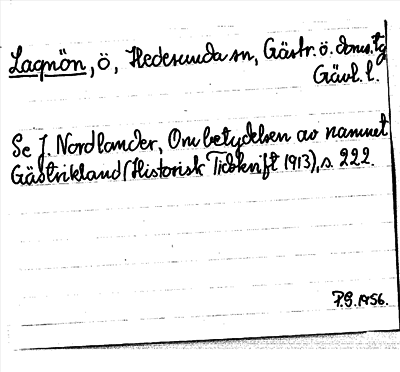 Lagnön, ö, Hedesunda sn, Gästr. ö. doms. tg
Gävl. l.
Se J. Nordlander, Om betydelsen av namnet
Gästrikland (Historisk Tidskrift 1913), s. 222.
P.G. 1956.